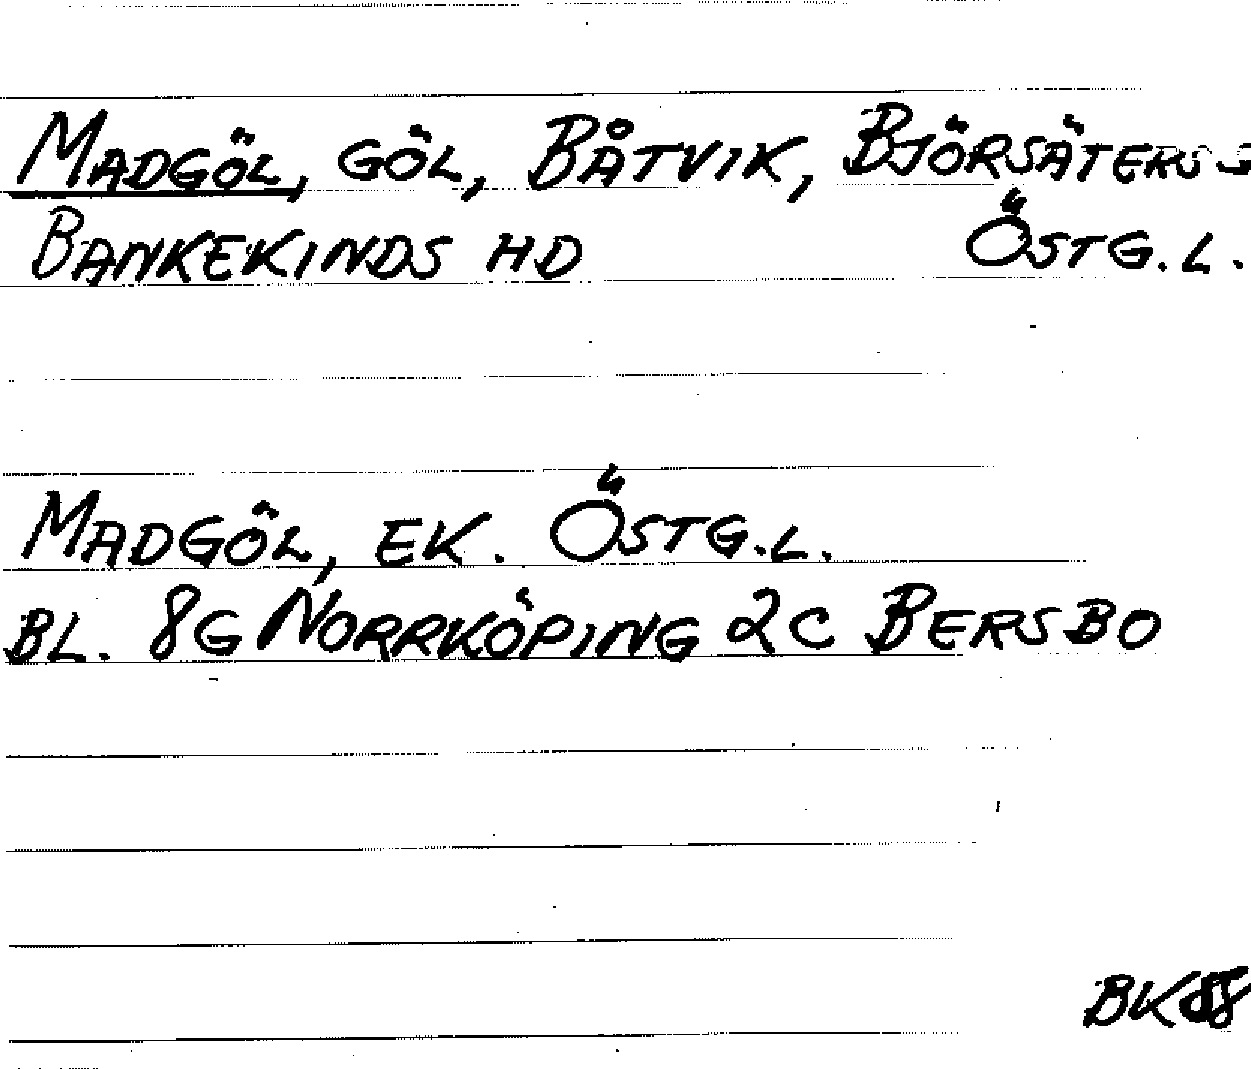 MADGÖL, GÖL, BÅTVIK, BJÖRSÄTERS S
BANKEKINDS HD ÖSTG. L.
MADGÖL, EK. ÖSTG.L.
BL. 8G NORRKÖPING 2C BERSBO
BK88